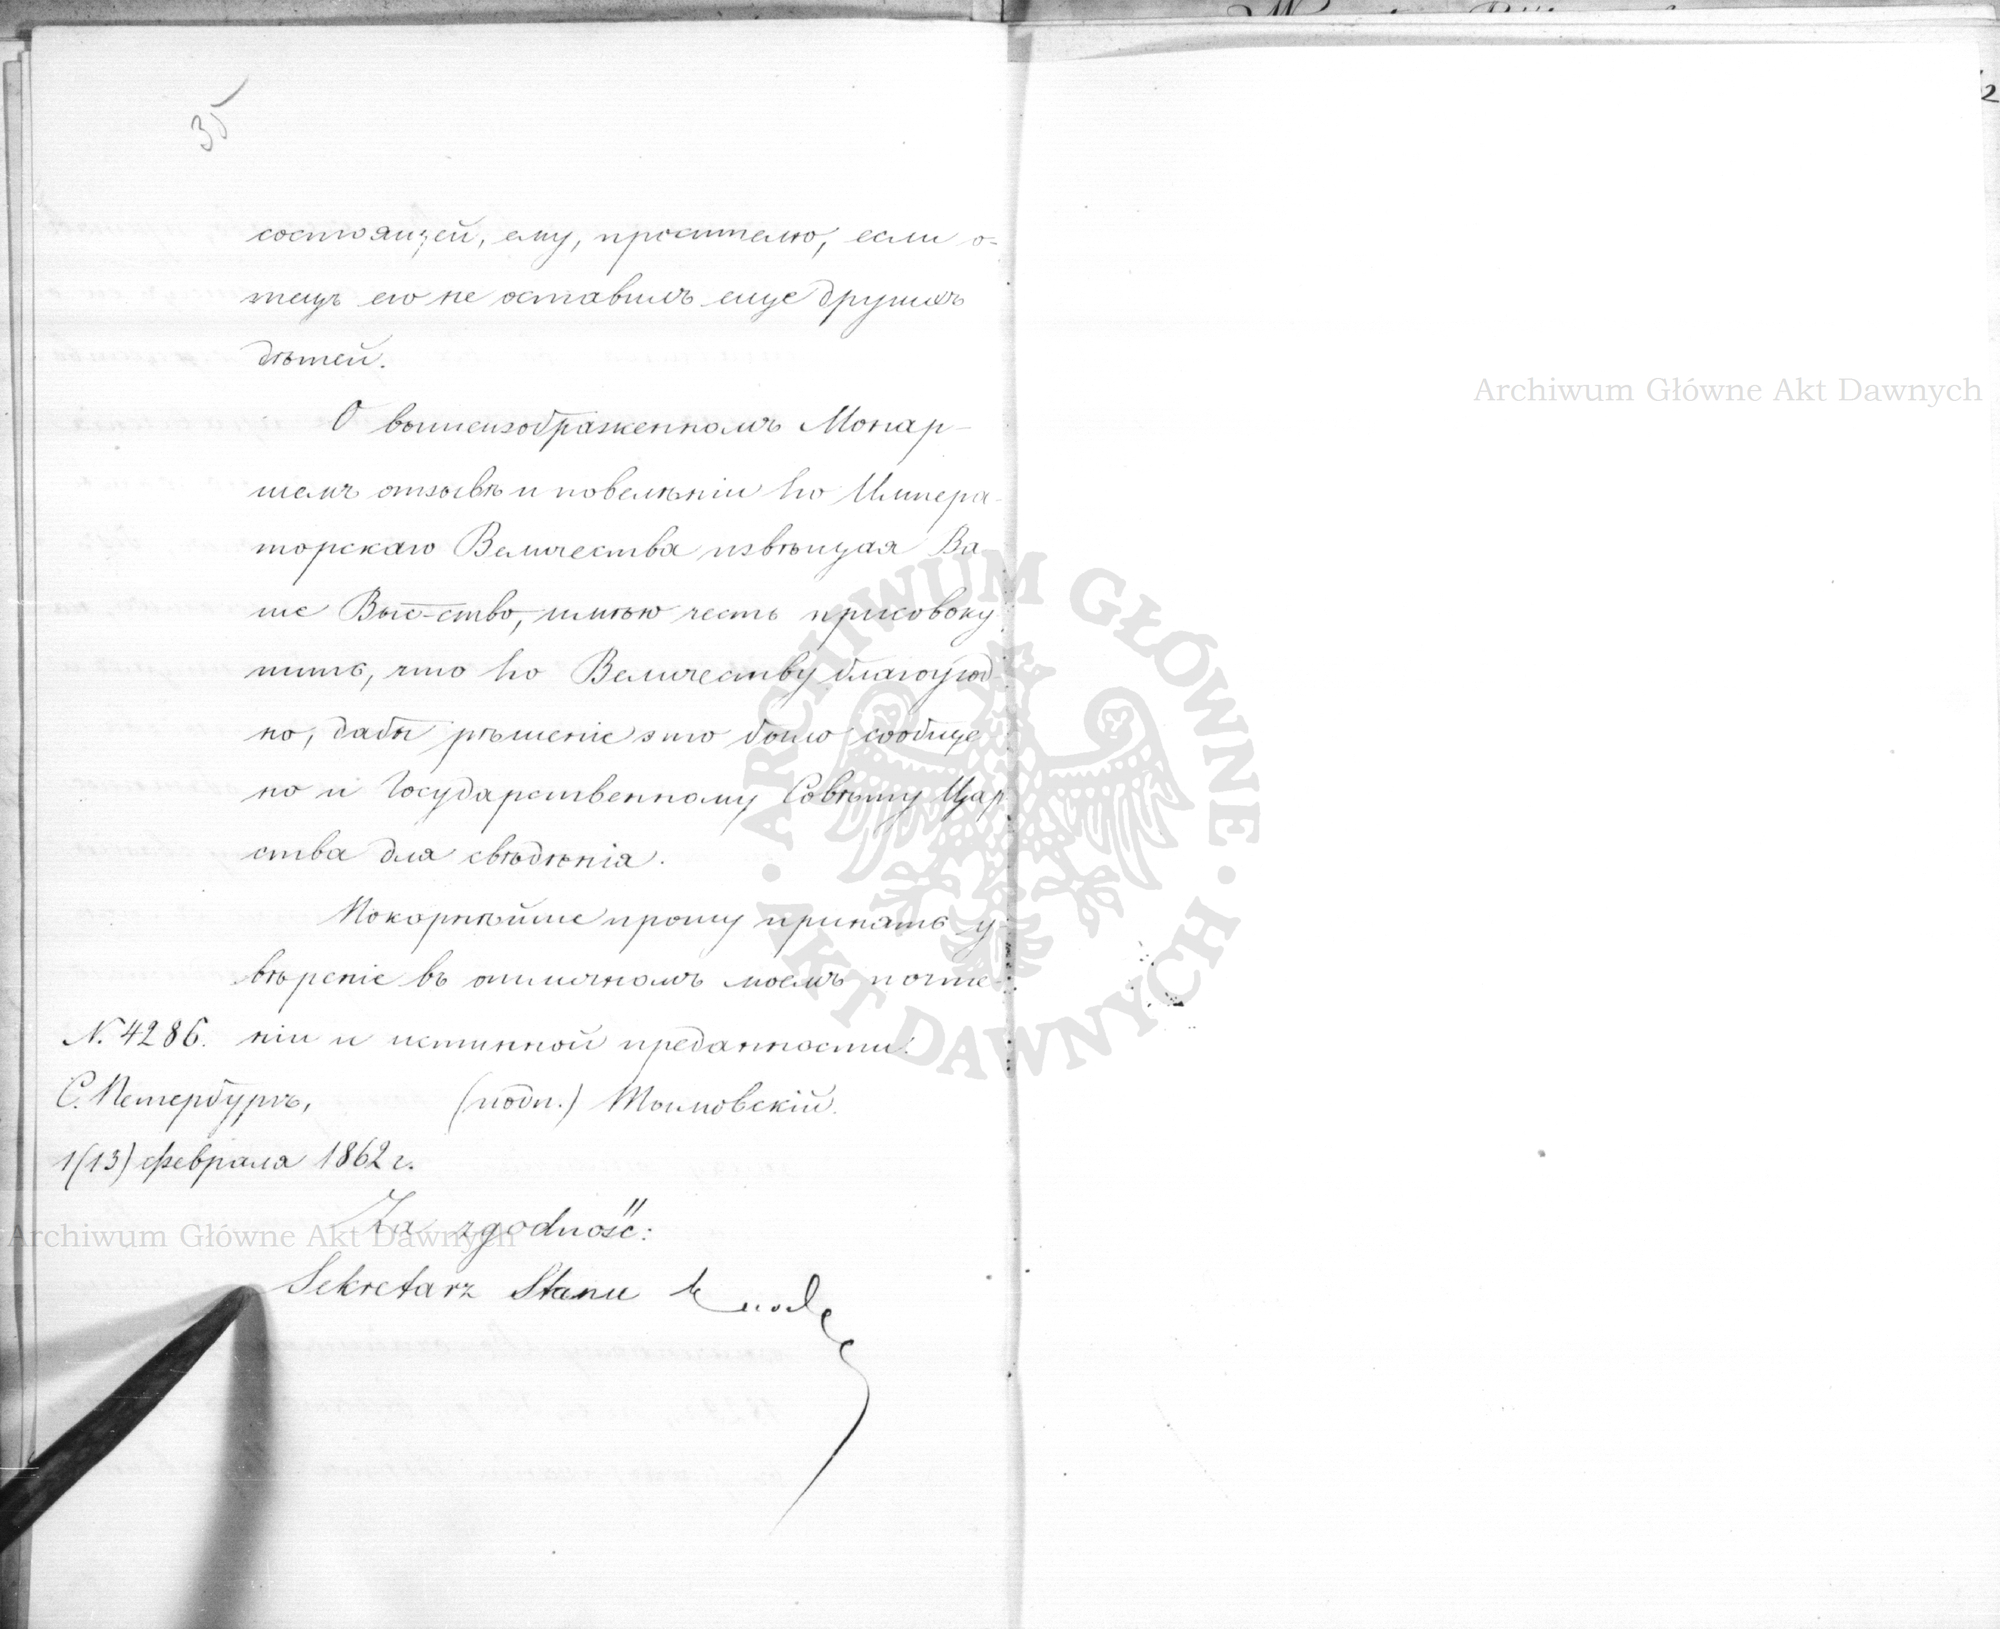 35
состоящей, ему, просителю, если о-
тецъ его не оставилъ еще другихъ
дѣтей.
О вышеизображенномъ Монар-
шемъ отзывѣ и повелѣніи Его Импера-
торскаго Величества извѣщая Ва
ше Выс-ство, имѣю честь присовоку
пить, что Его Величеству благоугод-
но, дабы рѣшеніе это было сообще
но и Государственному Совѣту Цар
ства для свѣдѣнія.
Покорнѣйше прошу принять у-
вѣреніе въ отличномъ моемъ почте-
N. 4286. ніи и истинной преданности.
С. Петербургъ, (подп.) Тымовскій.
1(13) февраля 1862 г.
Za zgodność:
Sekretarz Stanu
Archiwum Główne Akt Dawnych
Archiwum Główne Akt Dawnych
ARCHIWUM GŁÓWNE AKT DAWNYCH